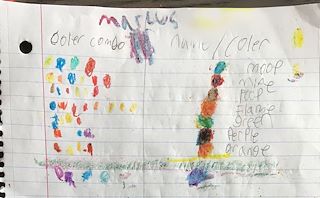 marcus
coler combo
name/coler
moop
mine
poop
flame
green
perple
orange